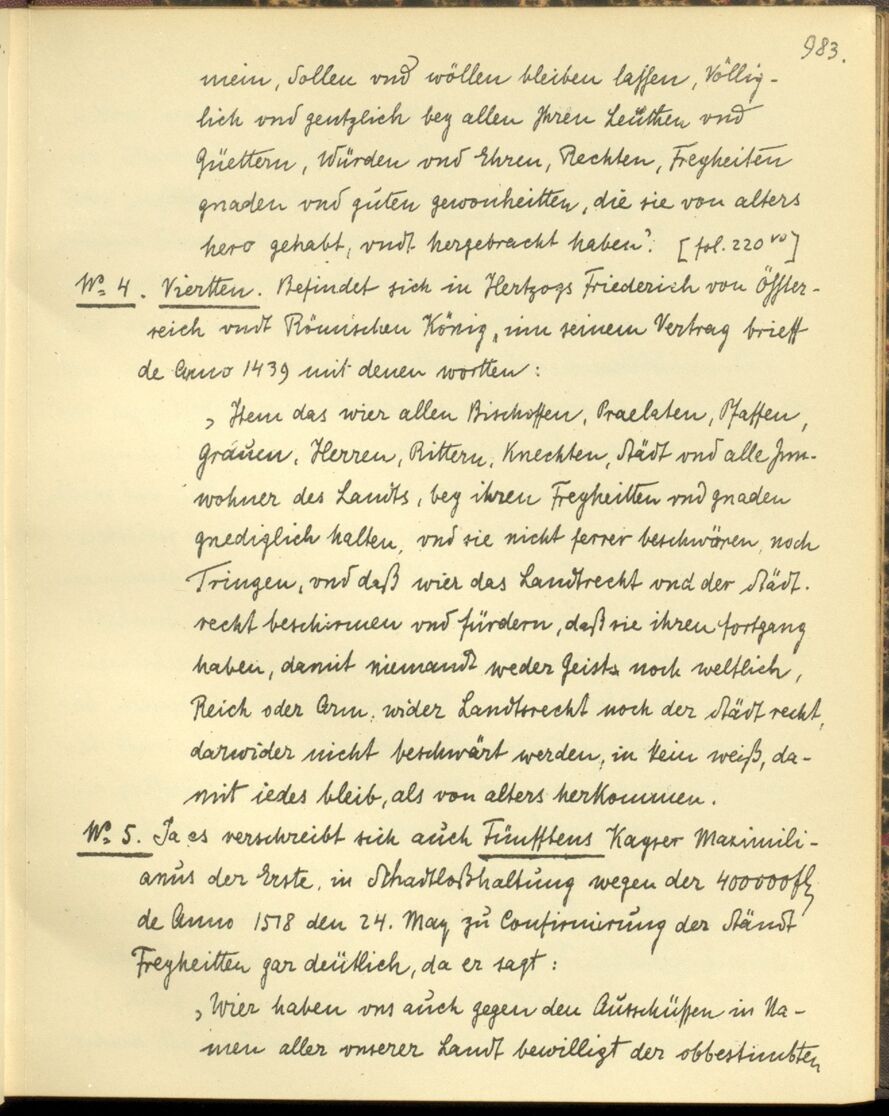 983.
mein, Sollen vnd wöllen bleiben lassen, Völlig-
lich vnd gentzlich bey allen Ihren Leüthen vnd
Güettern, Würden vnd Ehren, Rechten, Freyheiten
gnaden vnd guten gewonheitten, die sie von alters
hero gehabt, vndt hergebracht haben". [fol. 220 vo]
No 4. Viertten. Befindet sich in Hertzogs Friederich von Össter-
reich vndt Römischen König, inn seinem Vertrag brieff
de Anno 1439 mit denen wortten:
„Item das wier allen Bischoffen, Praelaten, Pfaffen,
Grauen, Herren, Rittern, Knechten, Städt vnd alle Jnn-
wohner des Landts, bey ihren Freyheitten vnd gnaden
gnediglich halten, vnd sie nicht ferrer beschwören, noch
Tringen, vnd daß wier das Landtrecht vnd der Städt-
recht beschirmen vnd fürdern, daß sie ihren fortgang
haben, damit niemandt weder Geists noch weltlich,
Reich oder Arm, wider Landtsrecht noch der Städt recht,
darwider nicht beschwärt werden, in kein weiß, da-
mit iedes bleib, als von alters herkommen.
No 5. Ja es verschreibt sich auch Fünfftens Kayser Maximili-
anus der Erste, in Schadtloßhaltung wegen der 400000 fl
de Anno 1518 den 24. May zu Confirmierung der Ständt
Freyheitten gar deütlich, da er sagt:
„Wier haben vns auch gegen den Ausschüssen in Na-
men aller vnserer Landt bewilligt der obbestimbten